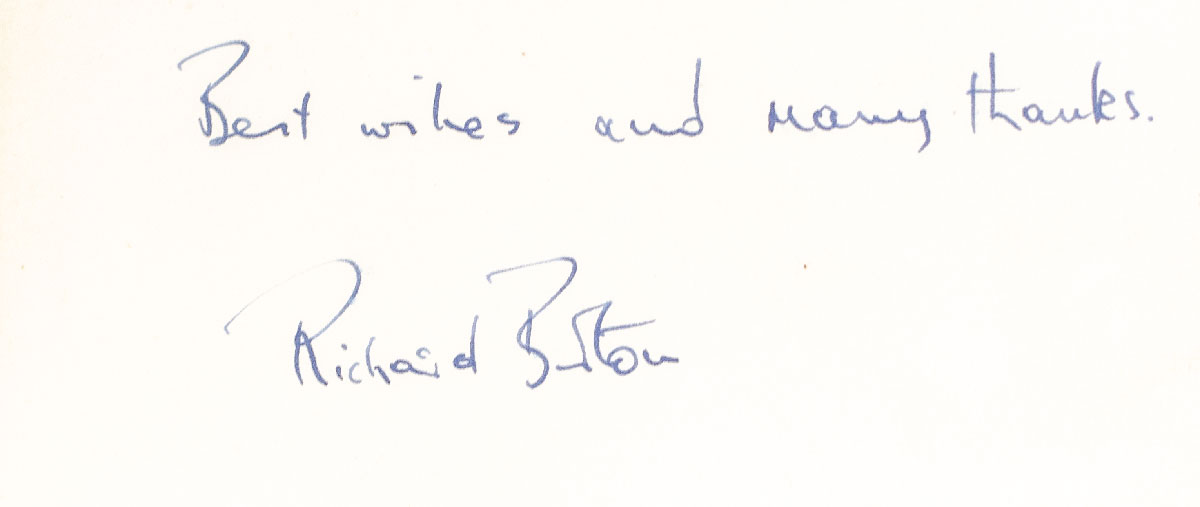 Best wishes and many thanks.
Richard Burton